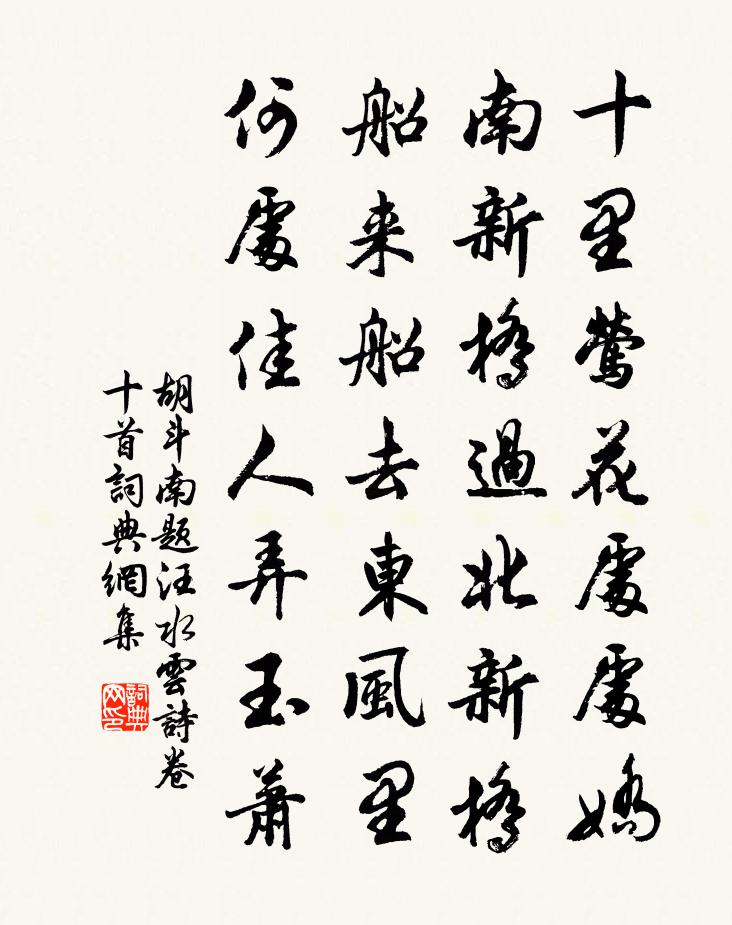 十里莺花處處嬌
南新橋過北新橋
船来船去東風里
何處佳人弄玉蕭
胡斗南題汪水雲詩卷
十首詞典網集
詞典网印